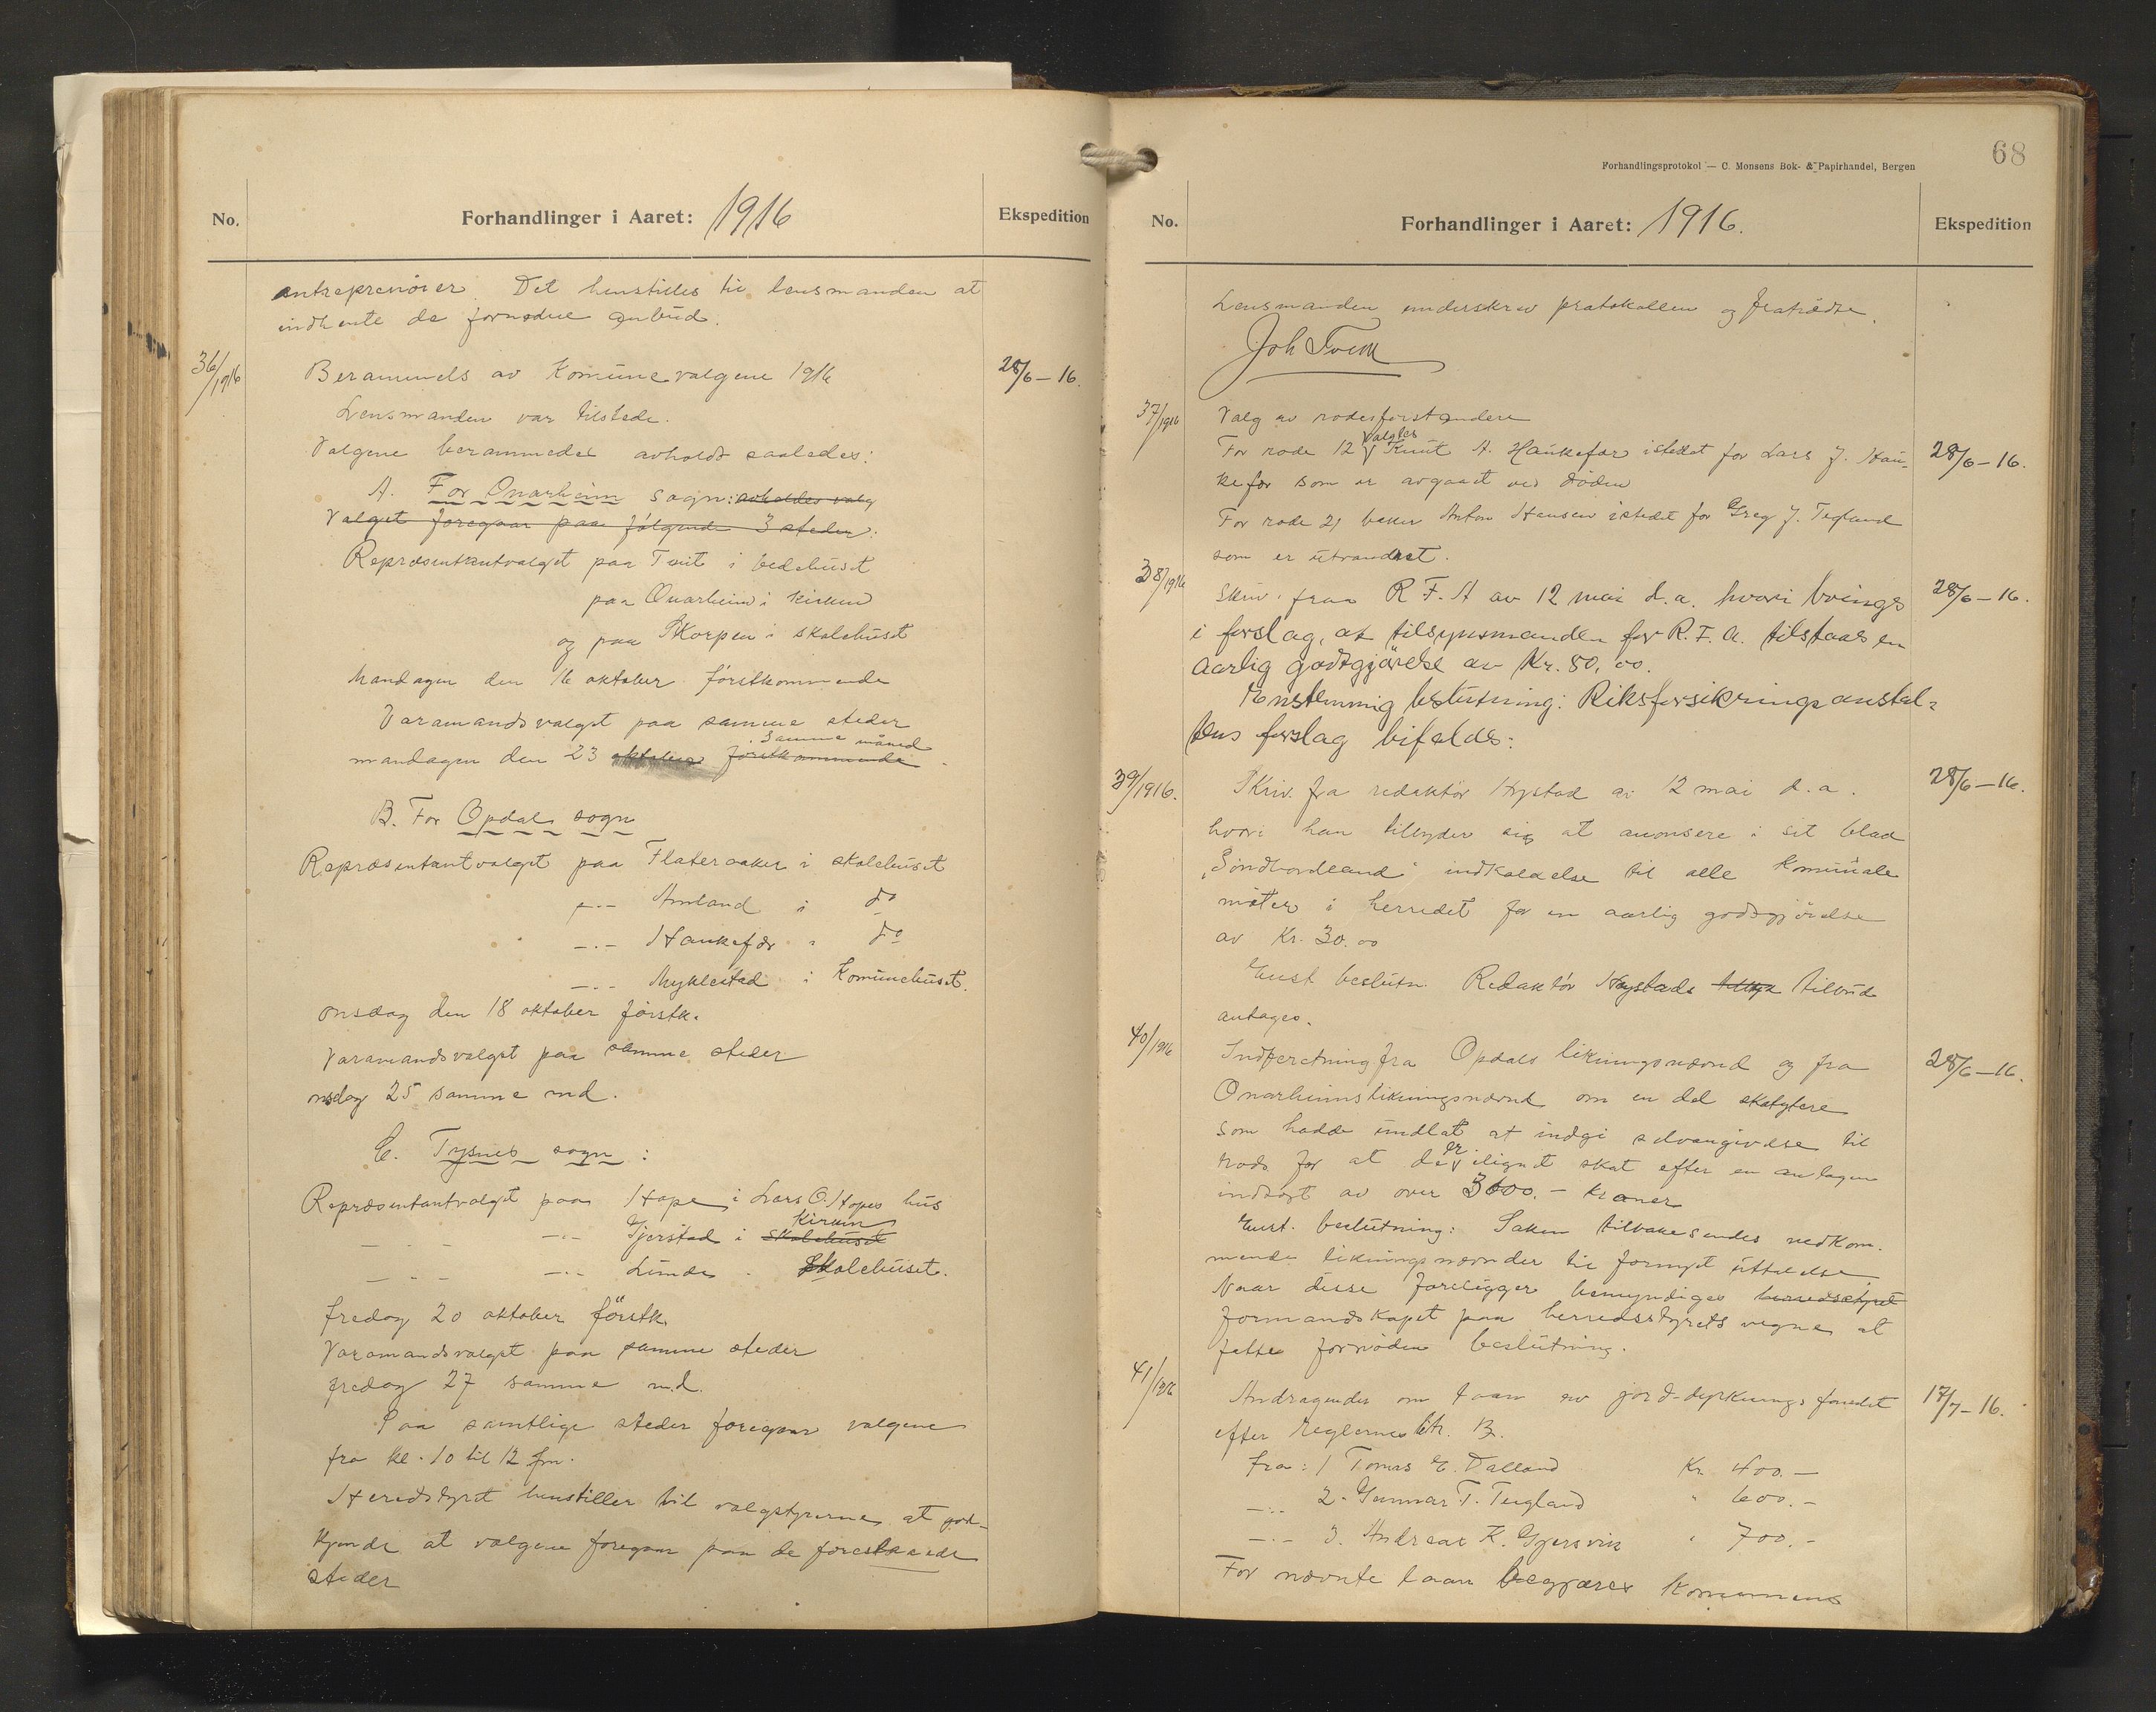 No.
Forhandlinger i Aaret: 1916
Ekspedition
antreprenører. Det henstilles til lensmanden at
indhente de fornødne anbud.
36/1916
Berammels av Komunevalgene 1916
28/6 – 16.
Lensmanden var tilstede.
Valgene berammedes avholdt saaledes:
A. For Onarheim sogn: avholdes valg
Valget foregaar paa følgende 3 steder.
Repræsentantvalget paa Tveit i bedehuset
paa Onarheim i Kirken
og paa Skorpen i skolehuset
Mandagen den 16 oktober førstkommende
Varamandsvalget paa samme steder
samme måned
mandagen den 23 oktober førstkommende.
B. For Opdals sogn
Repræsentantvalget paa Flateraaker i skolehuset
–·– Amland i do
–·– Haukefær i do
–·– Myklestad i Komunehuset.
onsdag den 18 oktober førstk.
Varamandsvalget paa samme steder
onsdag 25 samme md.
C. Tysnes sogn:
Repræsentantvalget paa Hope i Lars O. Hopes hus
Kirken
–·– –·– Gjerstad i skolehuset
–·– –·– Lunde - Skolehuset.
fredag 20 oktober førstk.
Varamandsvalget paa samme steder
fredag 27 samme md.
Paa samtlige steder foregaar valgene
fra kl. 10 til 12 fm.
Heredstyret henstiller til valgstyrerne at god-
kjende at valgene foregaar paa de forestaaende
steder
68
Forhandlingsprotokol — C. Monsens Bok- & Papirhandel, Bergen
No.
Forhandlinger i Aaret: 1916.
Ekspedition
Lensmanden underskrev protokollen og fratrædte.
Joh Tveit
37/1916
Valg av rodesforstandere
valgtes
For rode 12 Knut A. Haukefær istedet for Lars J. Hau-
28/6 – 16.
kefær som er avgaaet ved døden
For rode 21 baker Anton Hansen istedet for Greg J. Tegland
som er utvandret.
38/1916
Skriv. fraa R F. A av 12 mai d.a. hvori bringes
28/6 – 16.
i forslag, at tilsynsmanden for R. F. A. tilstaaes en
aarlig godtgjørelse av Kr. 50,00.
Enstemmig beslutning: Riksforsikringsanstal-
tens forslag bifaldes:
39/1916.
Skriv. fra redaktør Nystad av 12 mai d.a.
28/6 – 16.
hvori han tilbyder sig at anonsere i sit blad
„Søndhordland" indkaldelse til alle Komunale
møter i herredet for en aarlig godtgjørelse
av Kr. 30.00
Enst. beslutn. Redaktør Nystads tilbyd tilbud
antages.
40/1916
Indberetning fra Opdals likningsnævnd og fra
28/6 – 16.
Onarheims likningsnævnd om en del skatytere
som hadde undlat at indgi selvangivelse til
er
trods for at de ilignet skat efter en antagen
indtægt av over 3000.– kroner
Enst. beslutning: Saken tilbakesendes vedkom-
mende likningsnævnder til fornyet uttalelse
Naar disse foreligger bemyndiges herredstyret
formandskapet paa herredsstyrets vegne at
fatte fornøden beslutning.
41/1916
Andragender om laan av jord-dyrkningsfondet
17/7 – 16.
efter reglernes litr. B.
fra: 1 Tomas E. Dalland Kr. 400.–
–·– 2. Gunnar T. Teigland " 600.–
–·– 3. Andreas K. Gjersvik " 700.–
For nævnte laan begjæres Komunens